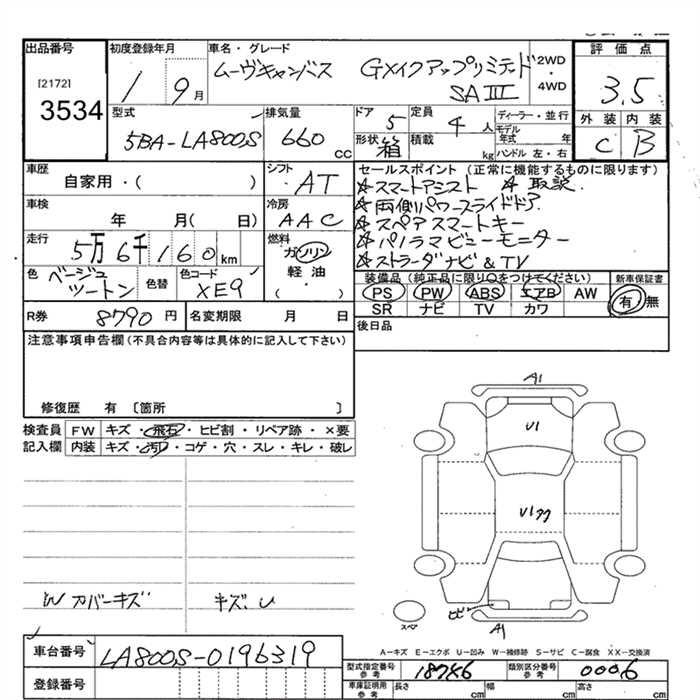 出品番号 初度登録年月 車名・グレード 評価点
[2172]
3534
1 9月
ムーヴキャンバス GXイクアップリミテッド SAⅢ
2WD・4WD
3.5
型式 排気量 ドア 定員 ディーラー・並行 外装 内装
5BA-LA800S 660cc 5 4人 モデル年式 年 C B
形状 箱 積載 kg ハンドル 左・右
車歴 シフト セールスポイント (正常に機能するものに限ります)
自家用・( ) AT
☆スマートアシスト ☆取説
車検 冷房 ☆両側パワースライドドア
年 月( 日) AAC ☆スペアスマートキー
走行 燃料 ☆パノラマビューモニター
5万6千160km ガソリン ☆ストラーダナビ&TV
軽油・( )
色 ベージュツートン 色替 色コード XE9
装備品 (純正品に限り○をつけてください) 新車保証書
PS PW ABS エアB AW 有・無
SR ナビ TV カワ
R券 8790円 名変期限 月 日
後日品
注意事項申告欄 (不具合内容等は具体的に記入して下さい)
修復歴 有 〔箇所 〕
検査員 FW キズ・飛石・ヒビ割・リペア跡・×要
記入欄 内装 キズ・汚レ・コゲ・穴・スレ・キレ・破レ
A1
U1
U1
W カバーキズ キズ、U
スペア
A1
A-キズ E-エクボ U-凹み W-補修跡 S-サビ C-腐食 XX-交換済
車台番号 LA800S-0196319
型式指定番号 参考 18746 類別区分番号 参考 0006
登録番号
車庫証明用 参考 長さ cm 幅 cm 高さ cm